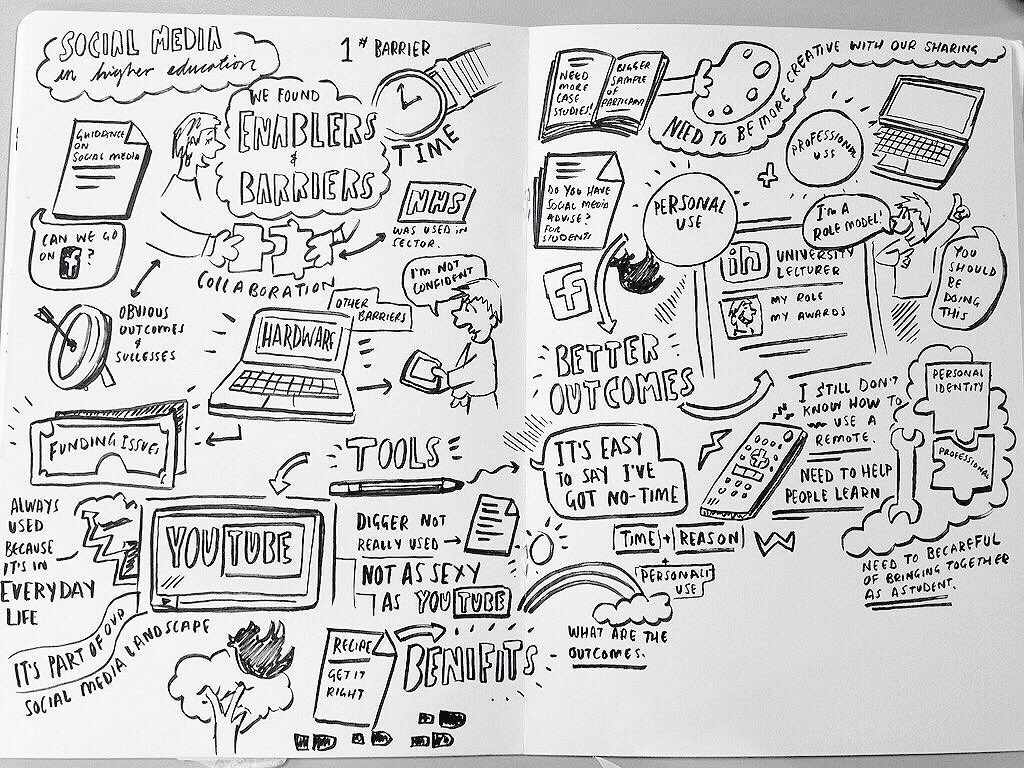 SOCIAL MEDIA
in higher education
1st BARRIER
TIME
WE FOUND
ENABLERS
&
BARRIERS
GUIDANCE
ON
SOCIAL MEDIA
CAN WE GO
ON f ?
COLLABORATION
NHS
WAS USED IN
SECTOR.
OBVIOUS
OUTCOMES
&
SUCCESSES
HARDWARE
OTHER
BARRIERS
I'M NOT
CONFIDENT
FUNDING ISSUES
TOOLS
ALWAYS
USED
BECAUSE
IT'S IN
EVERYDAY
LIFE
YOUTUBE
DIGGER NOT
REALLY USED
NOT AS SEXY
AS YOUTUBE
IT'S PART OF OUR
SOCIAL MEDIA LANDSCAPE
RECIPE
GET IT
RIGHT
BENIFITS
WHAT ARE THE
OUTCOMES.
NEED
MORE
CASE
STUDIES!
BIGGER
SAMPLE
OF
PARTICIPANT
NEED TO BE MORE CREATIVE WITH OUR SHARING
PROFESSIONAL
USE
+
PERSONAL
USE
DO YOU HAVE
SOCIAL MEDIA
ADVISE?
FOR
STUDENTS
f
I'M A
ROLE MODEL!
in
UNIVERSITY
LECTURER
MY ROLE
MY AWARDS
YOU
SHOULD
BE
DOING
THIS
BETTER
OUTCOMES
IT'S EASY
TO SAY I'VE
GOT NO-TIME
I STILL DON'T
KNOW HOW TO
USE A
REMOTE.
NEED TO HELP
PEOPLE LEARN
PERSONAL
IDENTITY
PROFESSIONAL
TIME + REASON
+
USE
NEED TO BECAREFUL
OF BRINGING TOGETHER
AS A STUDENT.